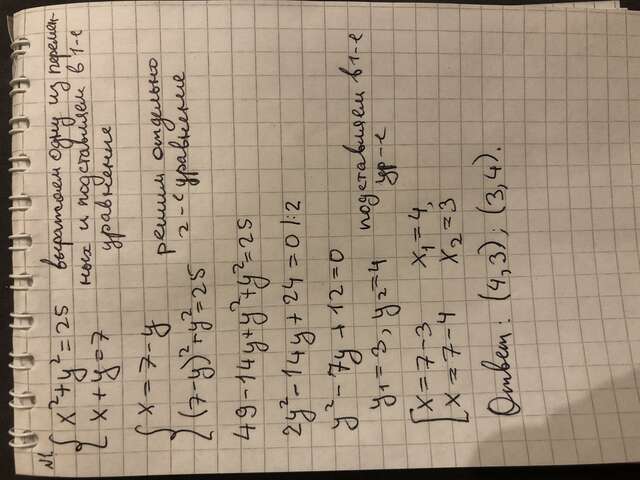 №1.
{ x² + y² = 25 выражаем одну из перемен-
{ x + y = 7 ных и подставляем в 1-е
уравнение
{ x = 7 - y решим отдельно
{ (7-y)² + y² = 25 2-е уравнение
49 - 14y + y² + y² = 25
2y² - 14y + 24 = 0 |:2
y² - 7y + 12 = 0
y₁ = 3, y₂ = 4 подставляем в 1-е
ур-е
[ x = 7 - 3 x₁ = 4,
[ x = 7 - 4 x₂ = 3
Ответ: (4,3); (3,4).